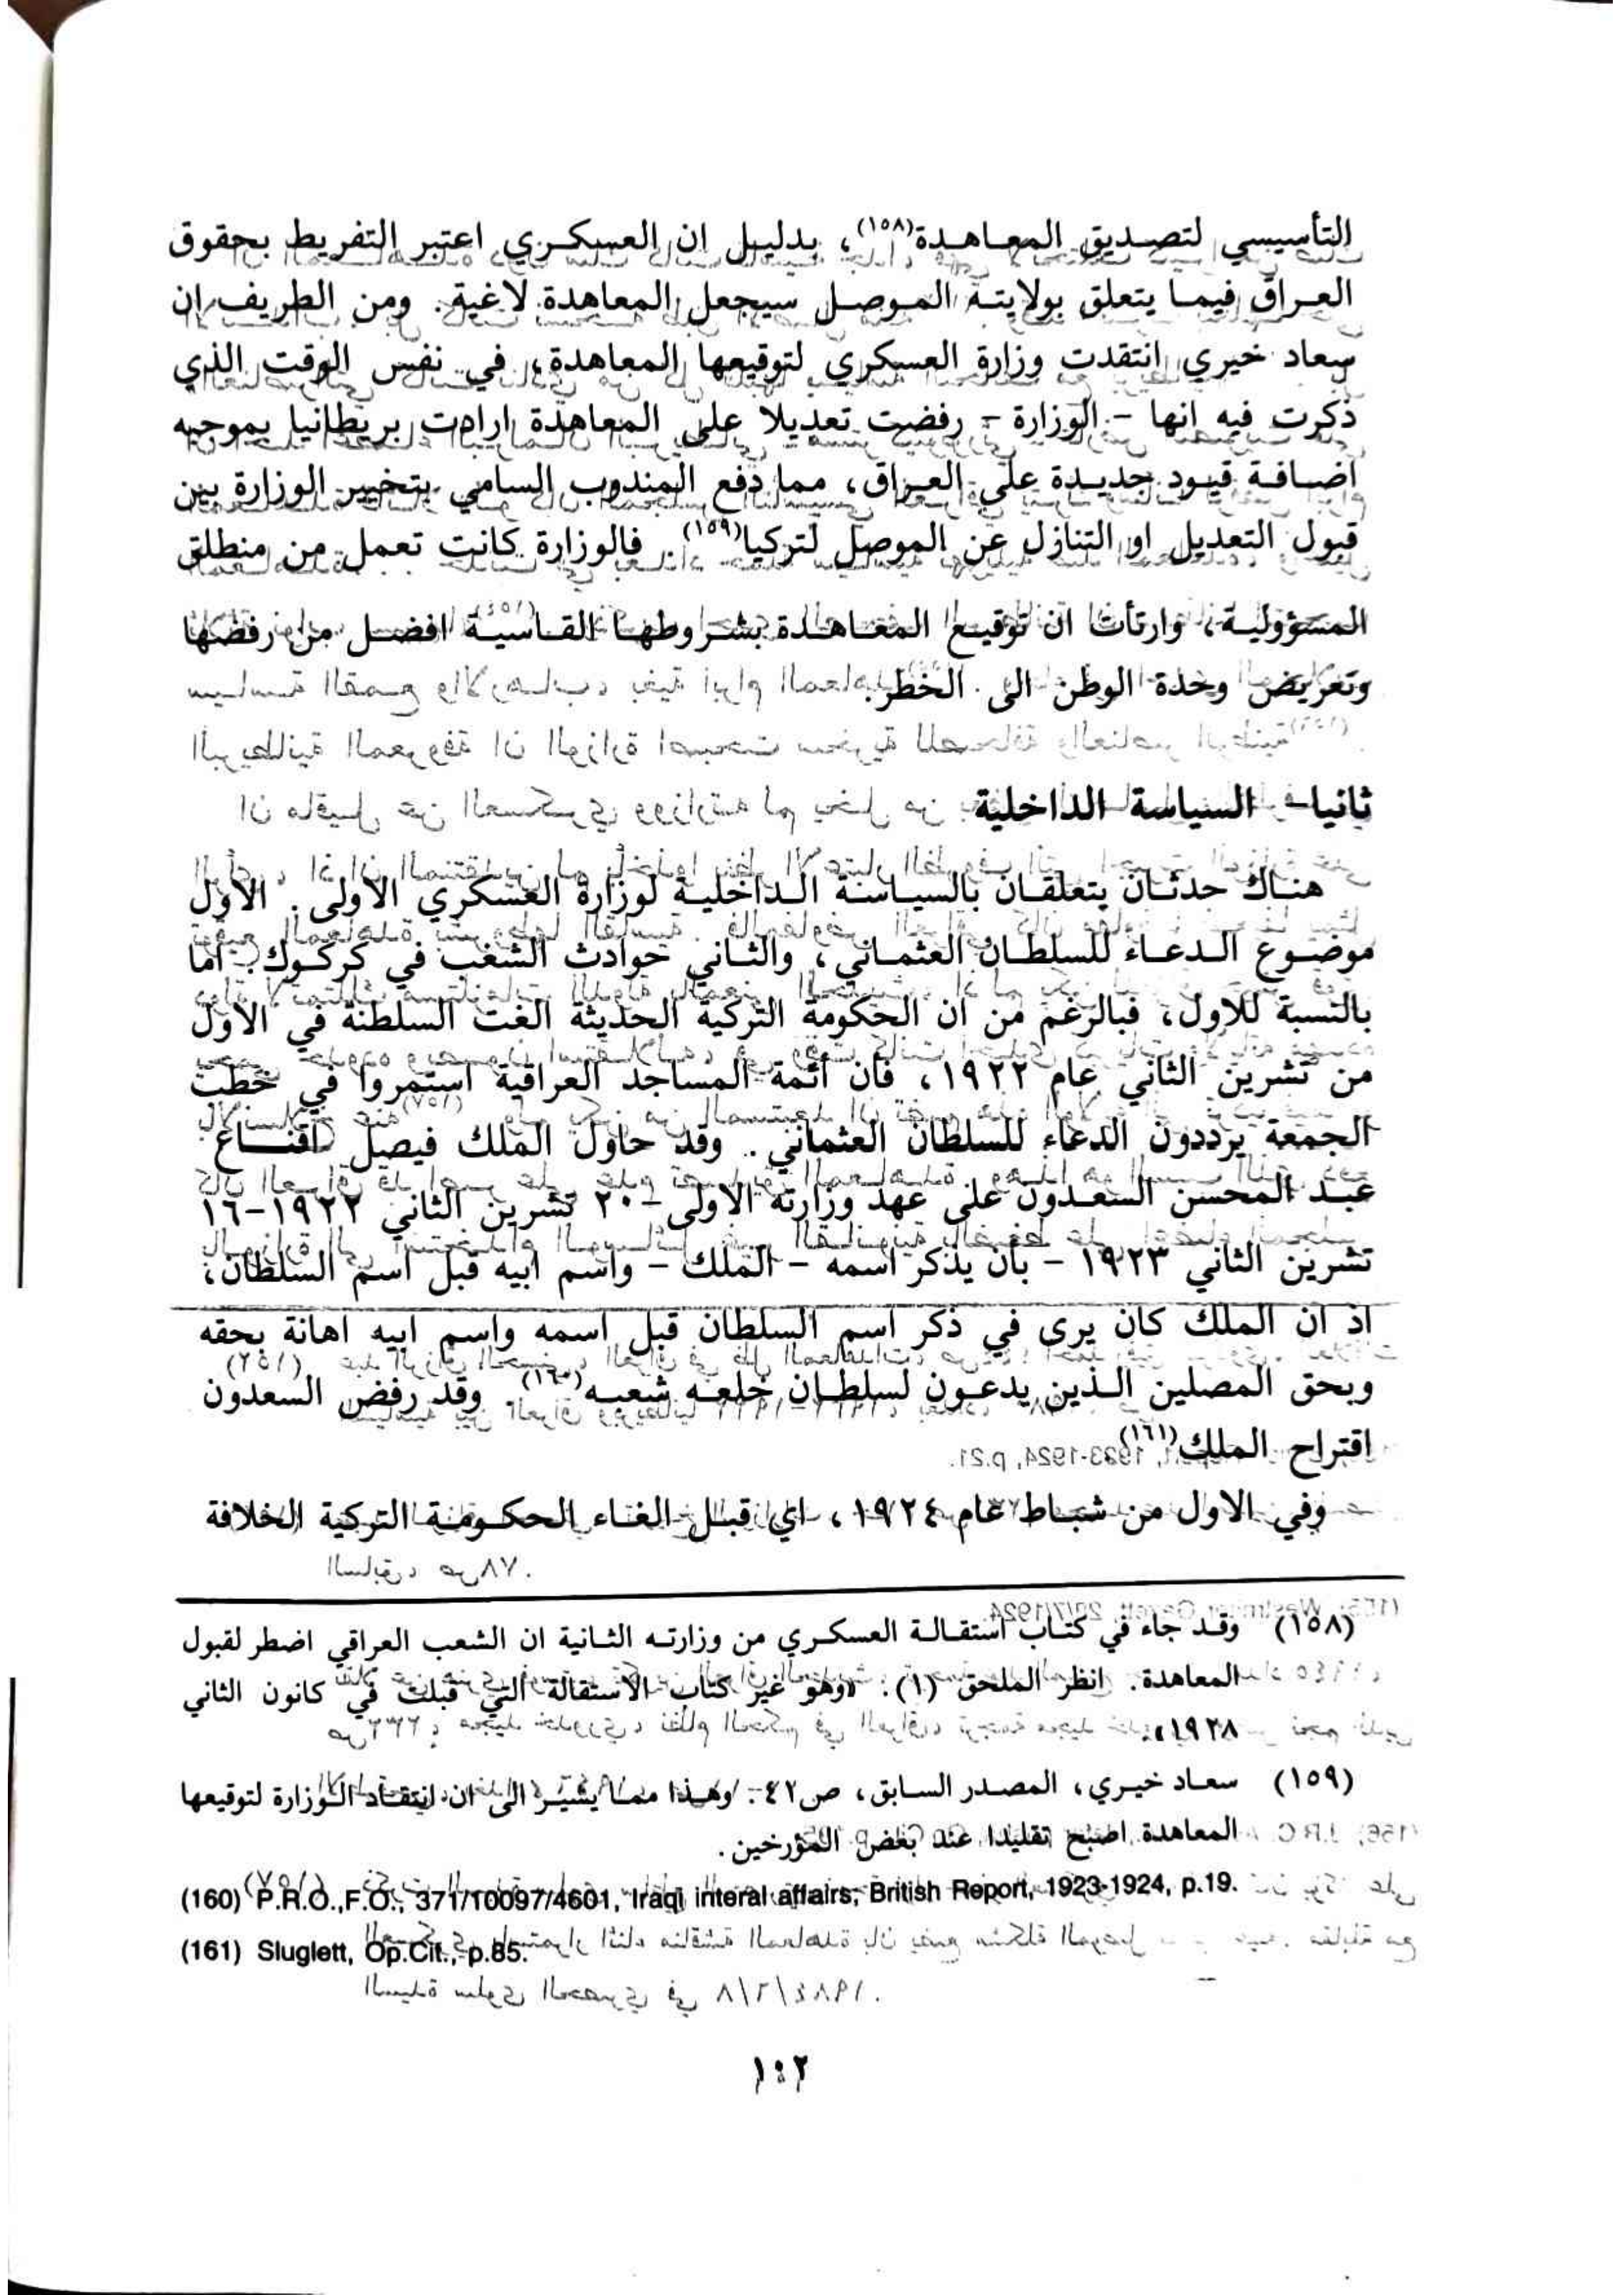 التأسيسي لتصديق المعاهدة(١٥٨)، بدليل ان العسكري اعتبر التفريط بحقوق
العراق فيما يتعلق بولايته الموصل سيجعل المعاهدة لاغية. ومن الطريف ان
سعاد خيري انتقدت وزارة العسكري لتوقيعها المعاهدة، في نفس الوقت الذي
ذكرت فيه انها - الوزارة - رفضت تعديلا على المعاهدة ارادت بريطانيا بموجبه
اضافة قيود جديدة على العراق، مما دفع المندوب السامي بتخيير الوزارة بين
قبول التعديل او التنازل عن الموصل لتركيا(١٥٩). فالوزارة كانت تعمل من منطلق
المسؤولية، وارتأت ان توقيع المعاهدة بشروطها القاسية افضل من رفضها
وتعريض وحدة الوطن الى الخطر.
ثانيا- السياسة الداخلية
هناك حدثان يتعلقان بالسياسة الداخلية لوزارة العسكري الاولى. الاول
موضوع الدعاء للسلطان العثماني، والثاني حوادث الشغب في كركوك. اما
بالنسبة للاول، فبالرغم من ان الحكومة التركية الحديثة الغت السلطنة في الاول
من تشرين الثاني عام ١٩٢٢، فان ائمة المساجد العراقية استمروا في خطب
الجمعة يرددون الدعاء للسلطان العثماني. وقد حاول الملك فيصل اقناع
عبد المحسن السعدون على عهد وزارته الاولى - ٢٠ تشرين الثاني ١٩٢٢-١٦
تشرين الثاني ١٩٢٣ - بأن يذكر اسمه - الملك - واسم ابيه قبل اسم السلطان،
اذ ان الملك كان يرى في ذكر اسم السلطان قبل اسمه واسم ابيه اهانة بحقه
وبحق المصلين الذين يدعون لسلطان خلعه شعبه(١٦٠). وقد رفض السعدون
اقتراح الملك(١٦١).
وفي الاول من شباط عام ١٩٢٤، اي قبل الغاء الحكومة التركية الخلافة
(١٥٨) وقد جاء في كتاب استقالة العسكري من وزارته الثانية ان الشعب العراقي اضطر لقبول
المعاهدة. انظر الملحق (١). «وهو غير كتاب الاستقالة التي قبلت في كانون الثاني
١٩٢٨».
(١٥٩) سعاد خيري، المصدر السابق، ص٤٢. وهذا مما يشير الى ان انتقاد الوزارة لتوقيعها
المعاهدة اصبح تقليدا عند بعض المؤرخين.
(160) P.R.O.,F.O., 371/10097/4601, Iraqi interal affairs, British Report, 1923-1924, p.19.
(161) Sluglett, Op.Cit., p.85.
١٠٢